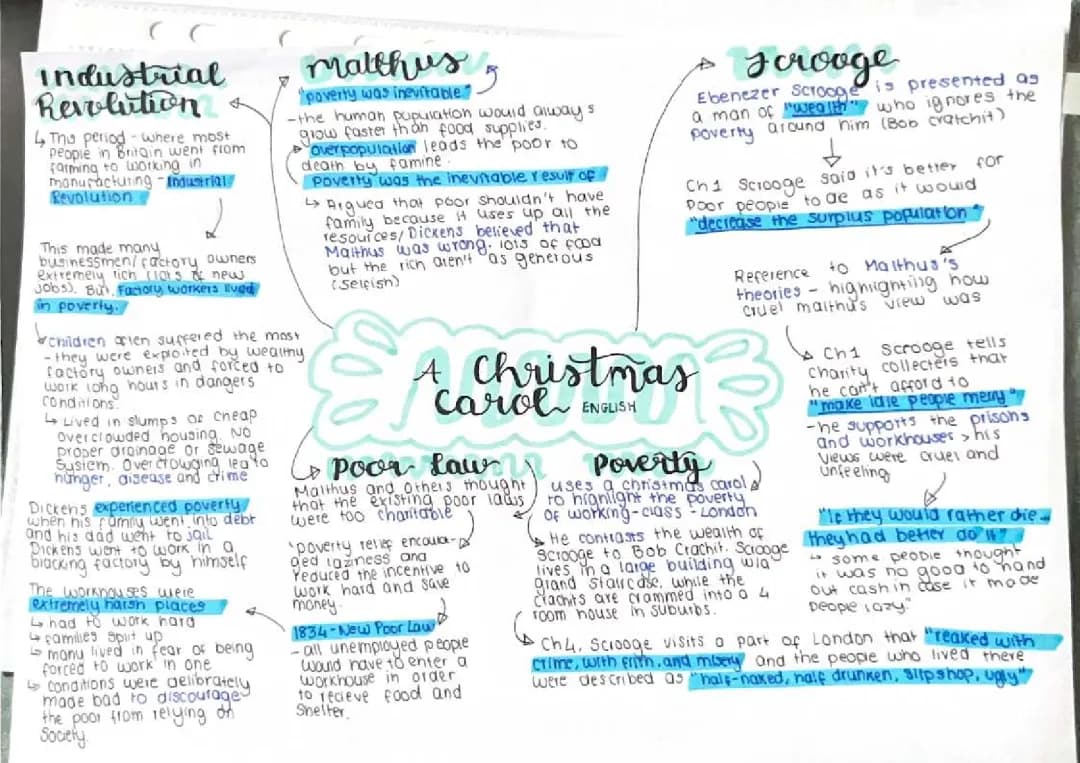 Industrial
Revolution
↳ This period - where most
people in Britain went from
farming to working in
manufacturing - Industrial
Revolution
This made many
businessmen/factory owners
extremely rich (lots & new
jobs). But, Factory workers lived
in poverty.
children often suffered the most
- they were exploited by wealthy
factory owners and forced to
work long hours in dangers
conditions.
↳ Lived in slumps of cheap
overcrowded housing. NO
proper drainage or sewage
system. Overcrowging lea to
hunger, disease and crime
Dickens experienced poverty
when his family went into debt
and his dad went to jail
Dickens went to work in a
blacking factory by himself
The workhouses were
extremely harsh places
↳ had to work hard
↳ families split up
↳ many lived in fear of being
forced to work in one
↳ conditions were deliberately
made bad to discourage
the poor from relying on
society.
Malthus
"poverty was inevitable"
- the human population would always
grow faster than food supplies.
overpopulation leads the poor to
death by famine.
poverty was the inevitable result of
↳ Argued that poor shouldn't have
family because it uses up all the
resources/Dickens believed that
Malthus was wrong. lots of food
but the rich aren't as generous
(selfish)
Scrooge
Ebenezer Scrooge is presented as
a man of "wealth" who ignores the
poverty around him (Bob Cratchit)
Ch1 Scrooge said it's better for
poor people to die as it would
"decrease the surplus population"
Reference to Malthus's
theories - highlighting how
cruel malthu's view was
Ch1 Scrooge tells
charity collecters that
he can't afford to
"make idle people merry"
- he supports the prisons
and workhouses > his
views were cruel and
unfeeling
"If they would rather die -
they had better do it"
↳ some people thought
it was no good to hand
out cash in case it made
people lazy."
A Christmas
Carol ENGLISH
Poor Law
Malthus and others thought
that the existing poor laws
were too charitable
'poverty relief encoura-
ged laziness and
reduced the incentive to
work hard and save
money.
1834 - New Poor Law
- all unemployed people
would have to enter a
workhouse in order
to recieve food and
shelter.
Poverty
uses a christmas carol
to highlight the poverty
of working-class - London
↳ He contrasts the wealth of
Scrooge to Bob Crachit. Scrooge
lives in a large building w/a
grand staircase, while the
Crachits are crammed into a 4
room house in suburbs.
Ch4, Scrooge visits a part of London that "reaked with
crime, with filth, and misery" and the people who lived there
were described as "half-naked, half drunken, slipshop, ugly"